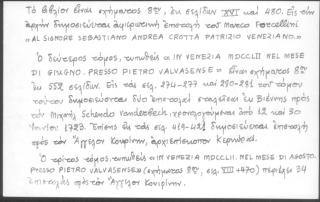 Τὸ βιβλίον εἶναι σχήματος 8ον, ἐκ σελίδων XVI καὶ 480. Εἰς τὴν
ἀρχὴν δημοσιεύεται ἀφιερωτικὴ ἐπιστολὴ τοῦ Marco Forcellini
«AL SIGNORE SEBASTIANO ANDREA CROTTA PATRIZIO VENEZIANO.»
Ὁ δεύτερος τόμος, τυπωθεὶς «IN VENEZIA MDCCLII NEL MESE
DI GIUGNO. PRESSO PIETRO VALVASENSE» εἶναι σχήματος 8ον
ἐκ 552 σελίδων. Εἰς τὰς σελ. 274-277 καὶ 280-281 τοῦ τόμου
τούτου δημοσιεύονται δύο ἐπιστολαὶ σταλεῖσαι ἐκ Βιέννης πρὸς
τὸν Μιχαὴλ Schendo Vanderbech, χρονολογούμεναι ἀπὸ 12 καὶ 30
Ἰουνίου 1723. Ἐπίσης εἰς τὰς σελ. 419-421 δημοσιεύεται ἐπιστολὴ
πρὸς τὸν Ἄγγελον Κουιρίνην, ἀρχιεπίσκοπον Κερκύρας.
Ὁ τρίτος τόμος, τυπωθεὶς «IN VENEZIA MDCCLII. NEL MESE DI AGOSTO.
PRESSO PIETRO VALVASENSE» (σχήματος 8ον, σελ. VIII + 470) περιέχει 34
ἐπιστολὰς πρὸς τὸν Ἄγγελον Κουιρίνην.